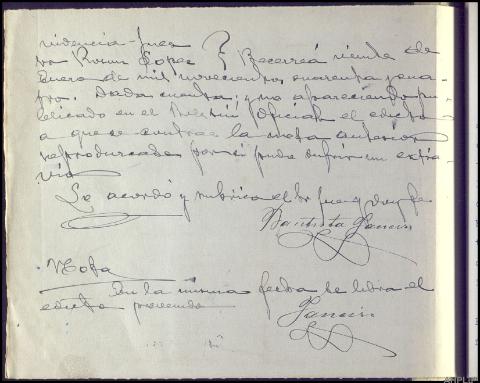 videncia - Juez
Sr Rosón López } Becerreá veinte de
Enero de mil novecientos cuarenta y cua-
tro. Dada cuenta; y no apareciendo pu-
blicado en el Boletín Oficial el edicto
a que se contrae la nota anterior
reprodúzcase por si pudo sufrir un extra-
vío
Lo acordó y rubrica el Sr Juez y doy fe
Bautista
Nota
En la misma fecha se libra el
edicto prevenido